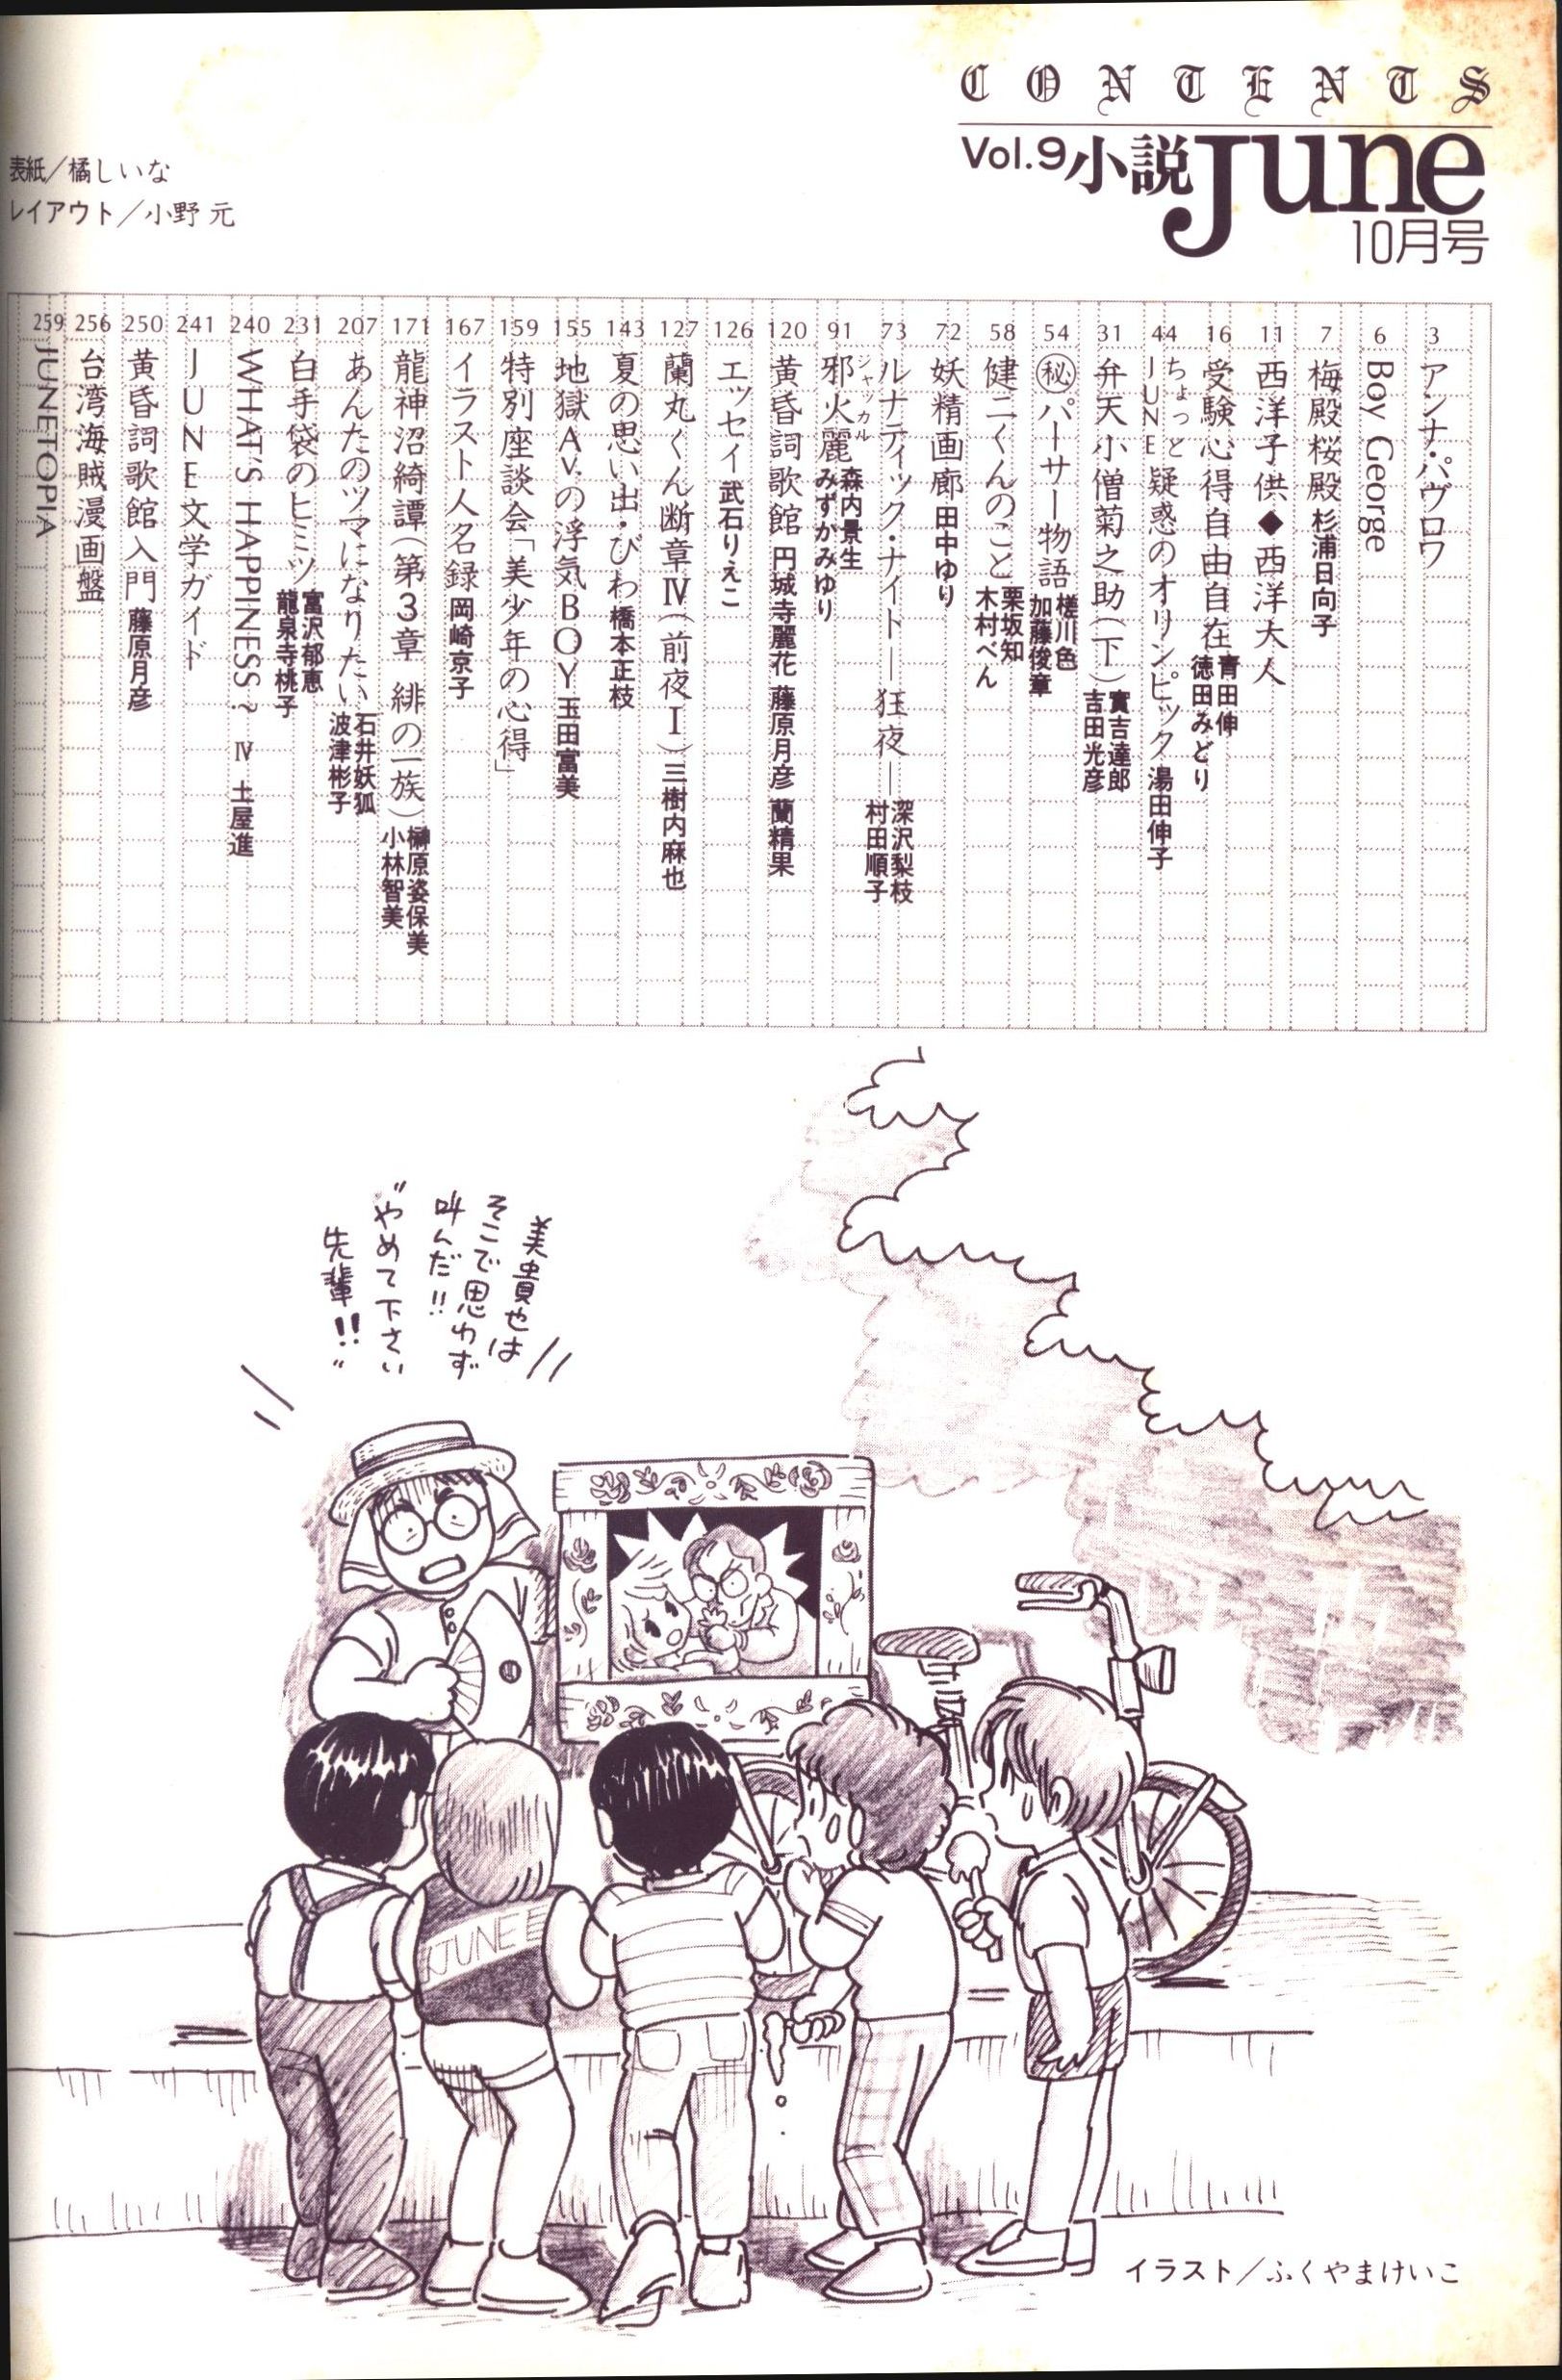 CONTENTS
Vol.9 小説 June
10月号
表紙／橘しいな
レイアウト／小野 元
3 アンナ・パヴロワ
6 Boy George
7 梅殿桜殿 杉浦日向子
11 西洋子供◆西洋大人
16 受験心得自由自在 青田伸 徳田みどり
44 ちょっとJUNE 疑惑のオリンピック 湯田伸子
31 弁天小僧菊之助(下) 實吉達郎 吉田光彦
54 ㊙パーサー物語 槎川色 加藤俊章
58 健二くんのこと 栗坂知 木村べん
72 妖精画廊 田中ゆり
73 ルナティック・ナイト―狂夜― 深沢梨枝 村田順子
91 邪火麗 ジャッカル 森内景生 みずかみゆり
120 黄昏詞歌館 円城寺麗花 藤原月彦 蘭精果
126 エッセイ 武石りえこ
127 蘭丸くん断章Ⅳ(前夜Ⅰ) 三樹内麻也
143 夏の思い出・びわ 橋本正枝
155 地獄A.V.の浮気BOY 玉田富美
159 特別座談会「美少年の心得」
167 イラスト人名録 岡崎京子
171 龍神沼綺譚(第3章 緋の一族) 榊原姿保美 小林智美
207 あんたのツマになりたい 石井妖狐 波津彬子
231 白手袋のヒミツ 富沢郁恵 龍泉寺桃子
240 WHAT'S HAPPINESS? Ⅳ 土屋進
241 JUNE文学ガイド
250 黄昏詞歌館入門 藤原月彦
256 台湾海賊漫画盤
259 JUNETOPIA
美貴也は
そこで思わず
叫んだ!!
〝やめて下さい
先輩!!〟
JUNE
イラスト／ふくやまけいこ